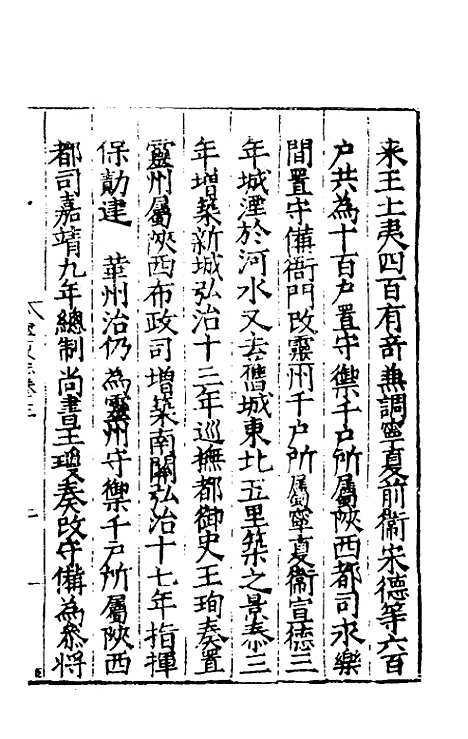 来王土夷四百有奇兼調寧夏前衞宋德等六百
户共為十百户置守禦千户所屬陝西都司永樂
間置守備衙門改靈州千户所屬寧夏衞宣德三
年城湮於河水又去舊城東北五里築之景泰三
年增築新城弘治十三年巡撫都御史王珣奏置
靈州屬陝西布政司增築南關弘治十七年指揮
保勛建 革州治仍為靈州守禦千户所屬陝西
都司嘉靖九年總制尚書王瓊奏改守備為叅將